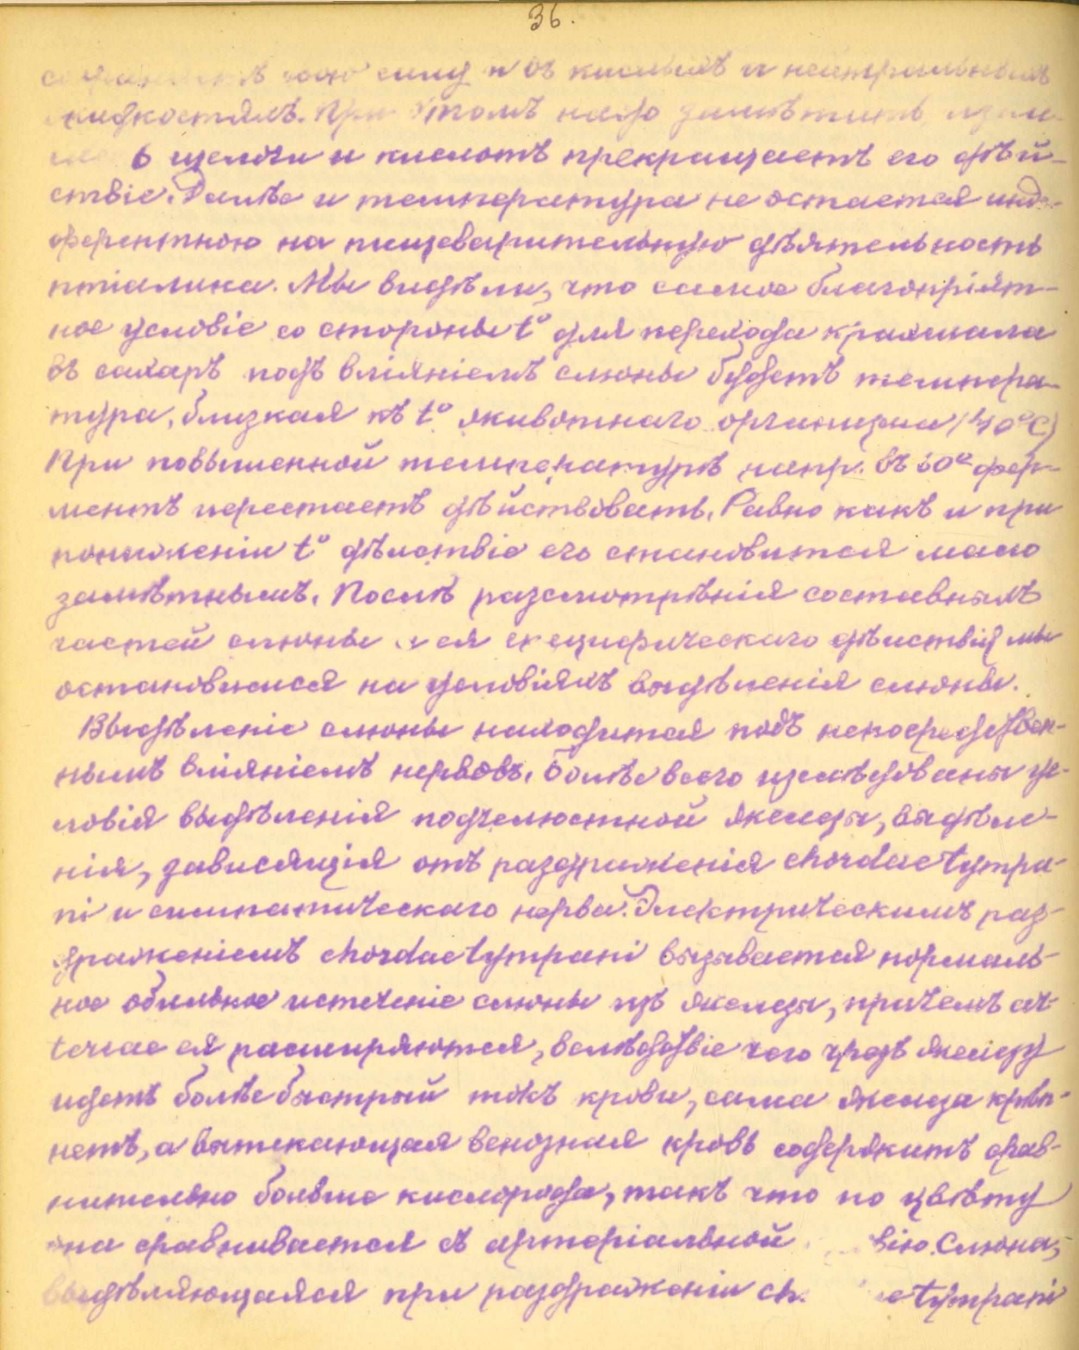 36.
свою силу и въ кислыхъ и нейтральныхъ
жидкостяхъ. При этомъ надо замѣтить,
щелочи и кислотъ прекращаетъ его дѣй-
ствіе. Далѣе и температура не остается инд
ферентною на пищеварительную дѣятельность
птіалина. Мы видѣли, что самое благопріят-
ное условіе со стороны t° для перехода крахмала
въ сахаръ подъ вліяніемъ слюны будетъ темпера-
тура, близкая къ t° животнаго организма (40°C)
При повышенной температурѣ напр. въ 60° фер-
ментъ перестаетъ дѣйствовать. Равно какъ и при
пониженіи t° дѣйствіе его становится мало
замѣтнымъ. Послѣ разсмотрѣнія составныхъ
частей слюны и ея специфическаго дѣйствія мы
остановимся на условіяхъ выдѣленія слюны.
Выдѣленіе слюны находится подъ непосредствен-
нымъ вліяніемъ нервовъ. Болѣе всего изслѣдованы ус-
ловія выдѣленія подчелюстной железы, выдѣле-
нія, зависящія отъ раздраженія chordae tympa-
ni и симпатическаго нерва. Электрическимъ раз-
драженіемъ chordae tympani вызывается нормаль-
ное обильное истеченіе слюны изъ железы, причемъ ar-
teriae ея расширяются, вслѣдствіе чего чрезъ железу
идетъ болѣе быстрый токъ крови, сама железа крас-
нетъ, а вытекающая венозная кровь содержитъ срав-
нительно больше кислорода, такъ что по цвѣту
она сравнивается съ артеріальной вію. Слюна,
выдѣляющаяся при раздраженіи ch. e tympani